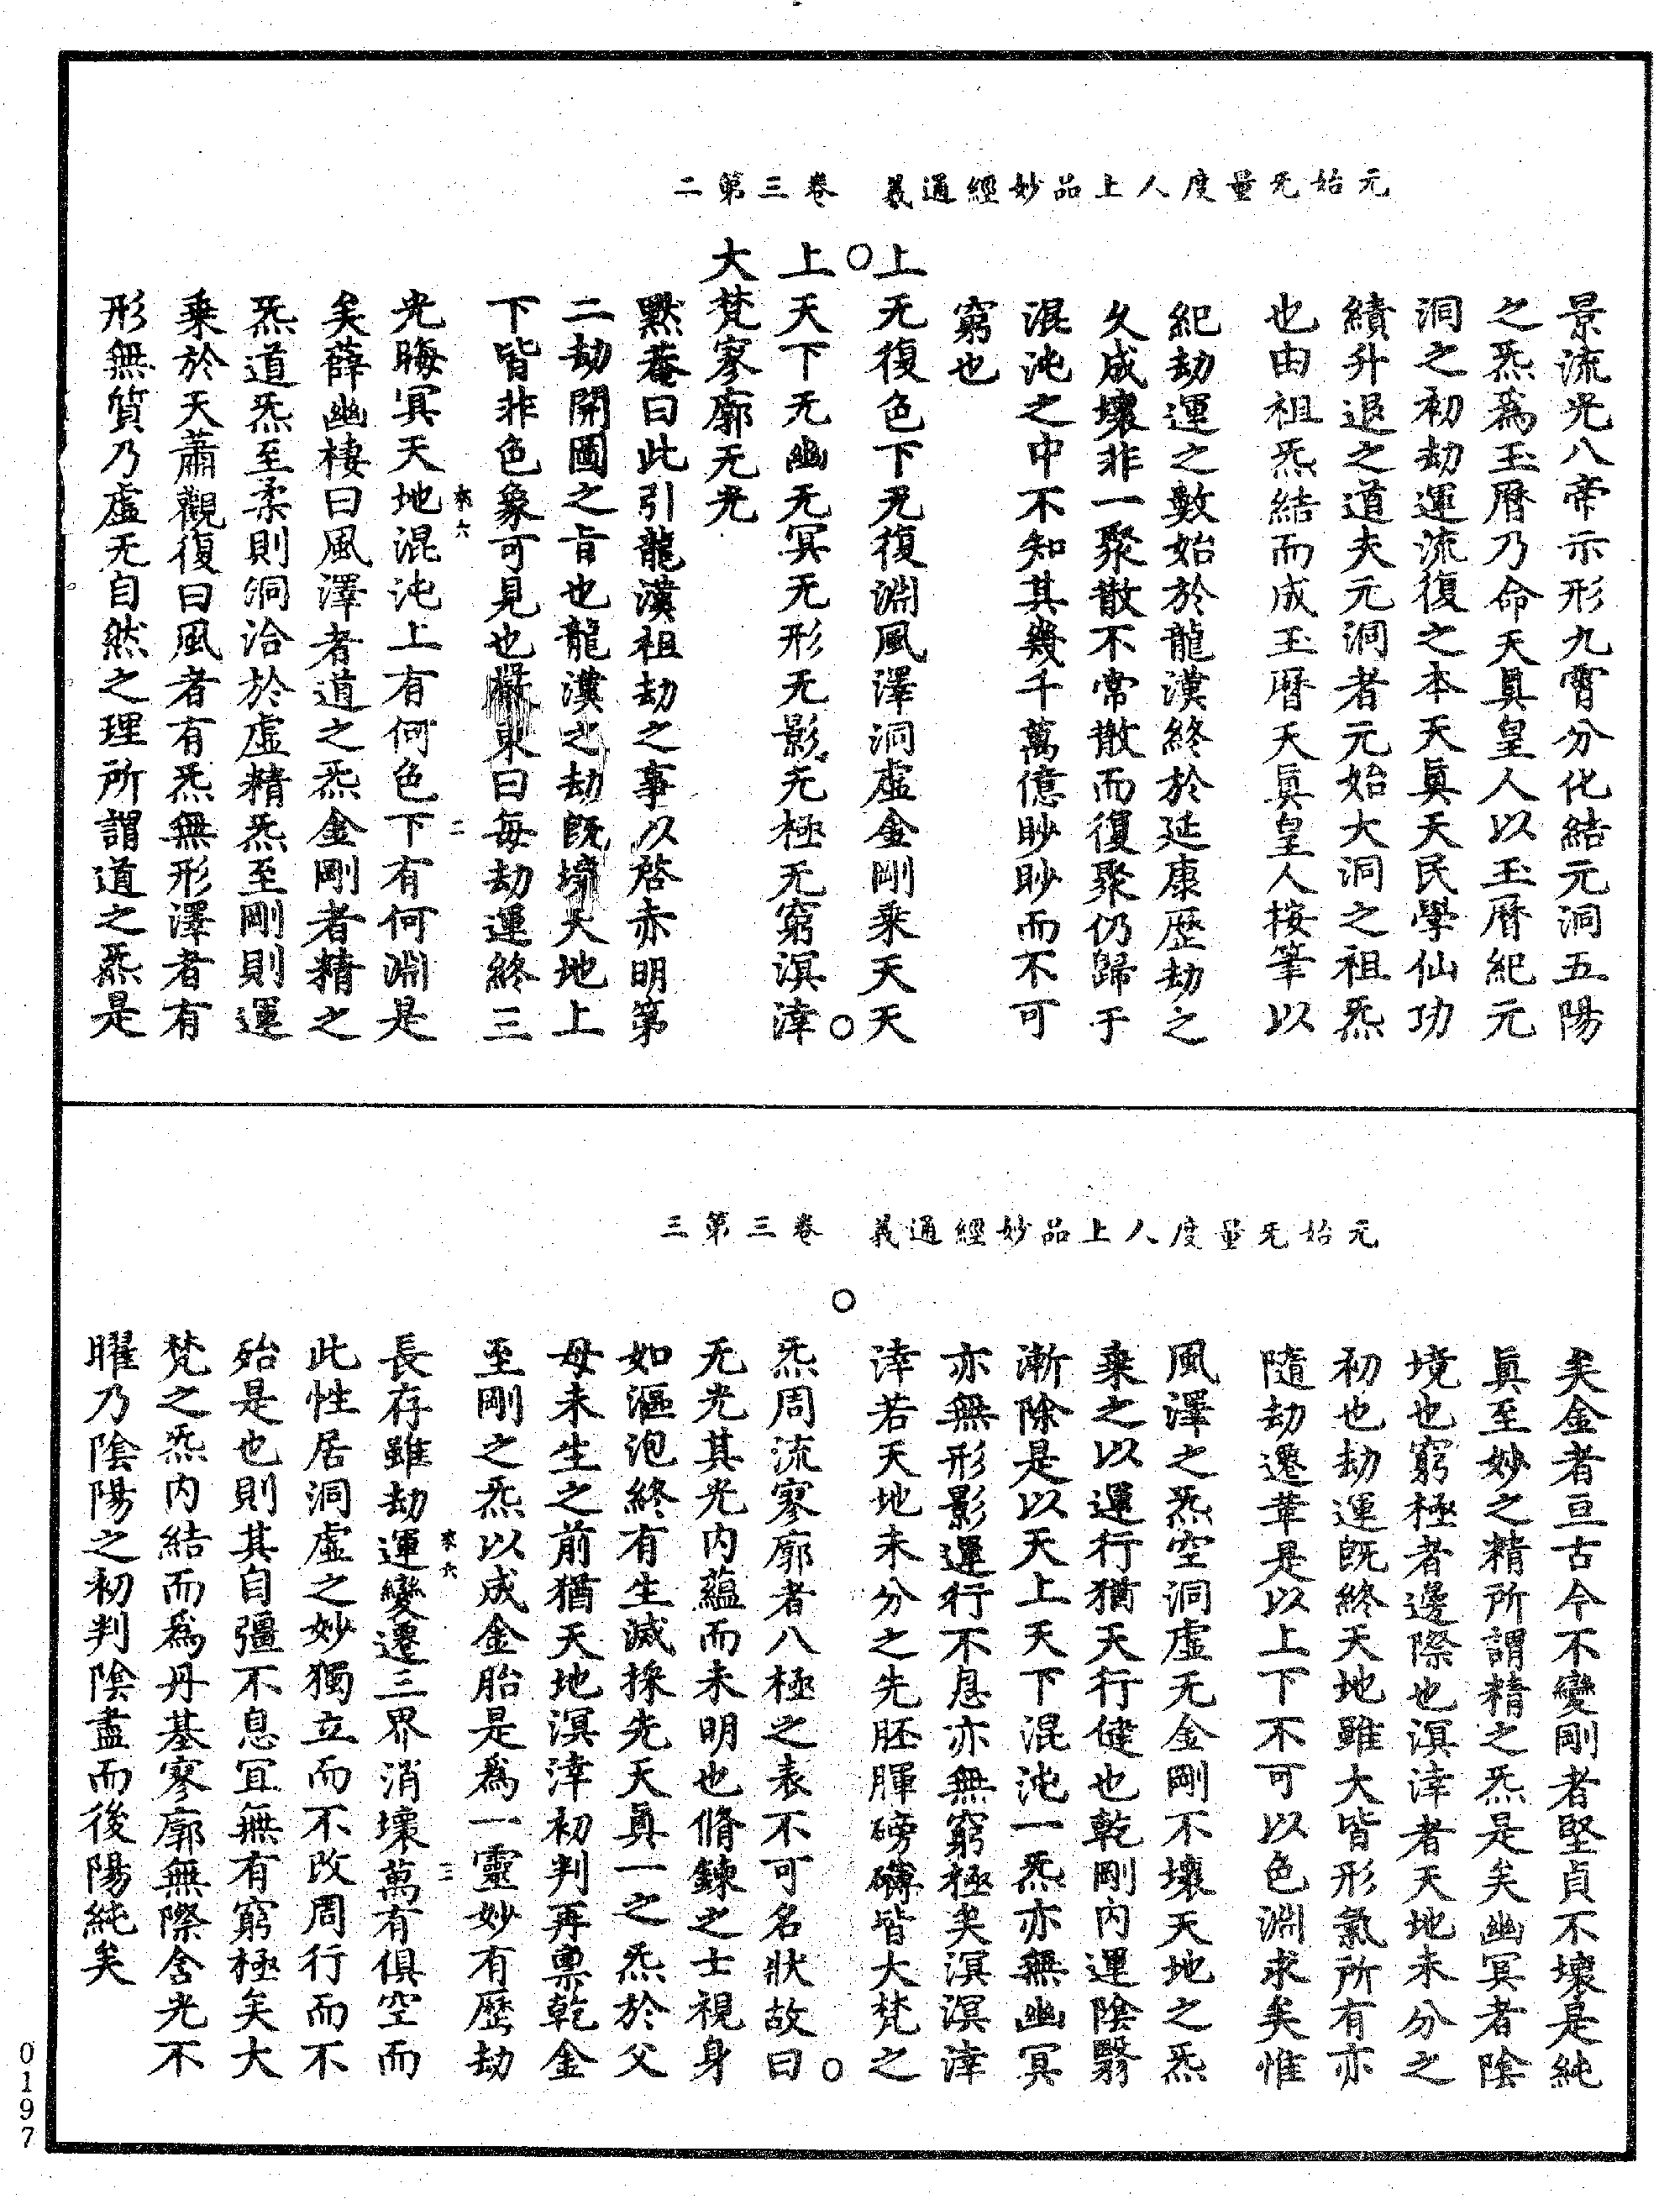 元始无量度人上品妙經通義　卷三第二
景流光八帝示形九霄分化結元洞五陽
之炁爲玉曆乃命天真皇人以玉曆紀元
洞之初劫運流復之本天真天民學仙功
績升退之道夫元洞者元始大洞之祖炁
也由祖炁結而成玉曆天真皇人按筆以
紀劫運之數始於龍漢終於延康歷劫之
久成壞非一聚散不常散而復聚仍歸于
混沌之中不知其幾千萬億眇眇而不可
窮也
上无復色下无復淵風澤洞虛金剛乘天天
上天下无幽无冥无形无影无極无窮溟涬
大梵寥廓无光
黙菴曰此引龍漢祖劫之事以啓赤明第
二劫開圖之旨也龍漢之劫旣壞天地上
下皆非色象可見也嚴東曰每劫運終三
光晦冥天地混沌上有何色下有何淵是
來六
二
矣薛幽棲曰風澤者道之炁金剛者精之
炁道炁至柔則洞洽於虛精炁至剛則運
乘於天蕭觀復曰風者有炁無形澤者有
形無質乃虛无自然之理所謂道之炁是
元始无量度人上品妙經通義　卷三第三
矣金者亘古今不變剛者堅貞不壞是純
真至妙之精所謂精之炁是矣幽冥者陰
境也窮極者邊際也溟涬者天地未分之
初也劫運旣終天地雖大皆形氣所有亦
隨劫遷革是以上下不可以色淵求矣惟
風澤之炁空洞虛无金剛不壞天地之炁
乘之以運行猶天行健也乾剛内運陰翳
漸除是以天上天下混沌一炁亦無幽冥
亦無形影運行不息亦無窮極矣溟溟涬
涬若天地未分之先胚腪磅礴皆大梵之
炁周流寥廓者八極之表不可名狀故曰
无光其光内蘊而未明也脩錬之士視身
如漚泡終有生滅採先天真一之炁於父
母未生之前猶天地溟涬初判再禀乾金
至剛之炁以成金胎是爲一靈妙有歷劫
長存雖劫運變遷三界消壞萬有俱空而
來六
三
此性居洞虛之妙獨立而不改周行而不
殆是也則其自彊不息宜無有窮極矣大
梵之炁内結而爲丹基寥廓無際含光不
曜乃陰陽之初判陰盡而後陽純矣
0197